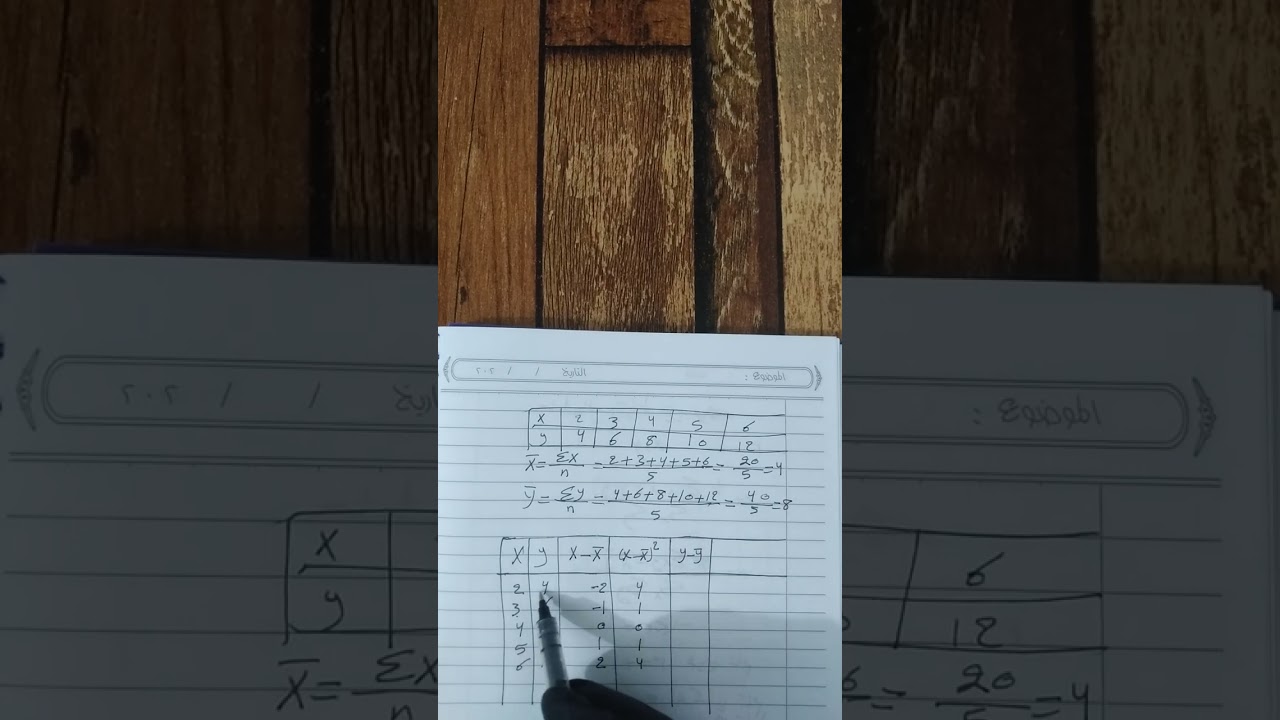 الموضوع : التاريخ / / ٢٠٢
x 2 3 4 5 6
y 4 6 8 10 12
x̄ = Σx/n = 2+3+4+5+6/5 = 20/5 = 4
ȳ = Σy/n = 4+6+8+10+12/5 = 40/5 = 8
x y x-x̄ (x-x̄)² y-ȳ
2 4 -2 4
3 -1 1
4 0 0
5 1 1
6 2 4